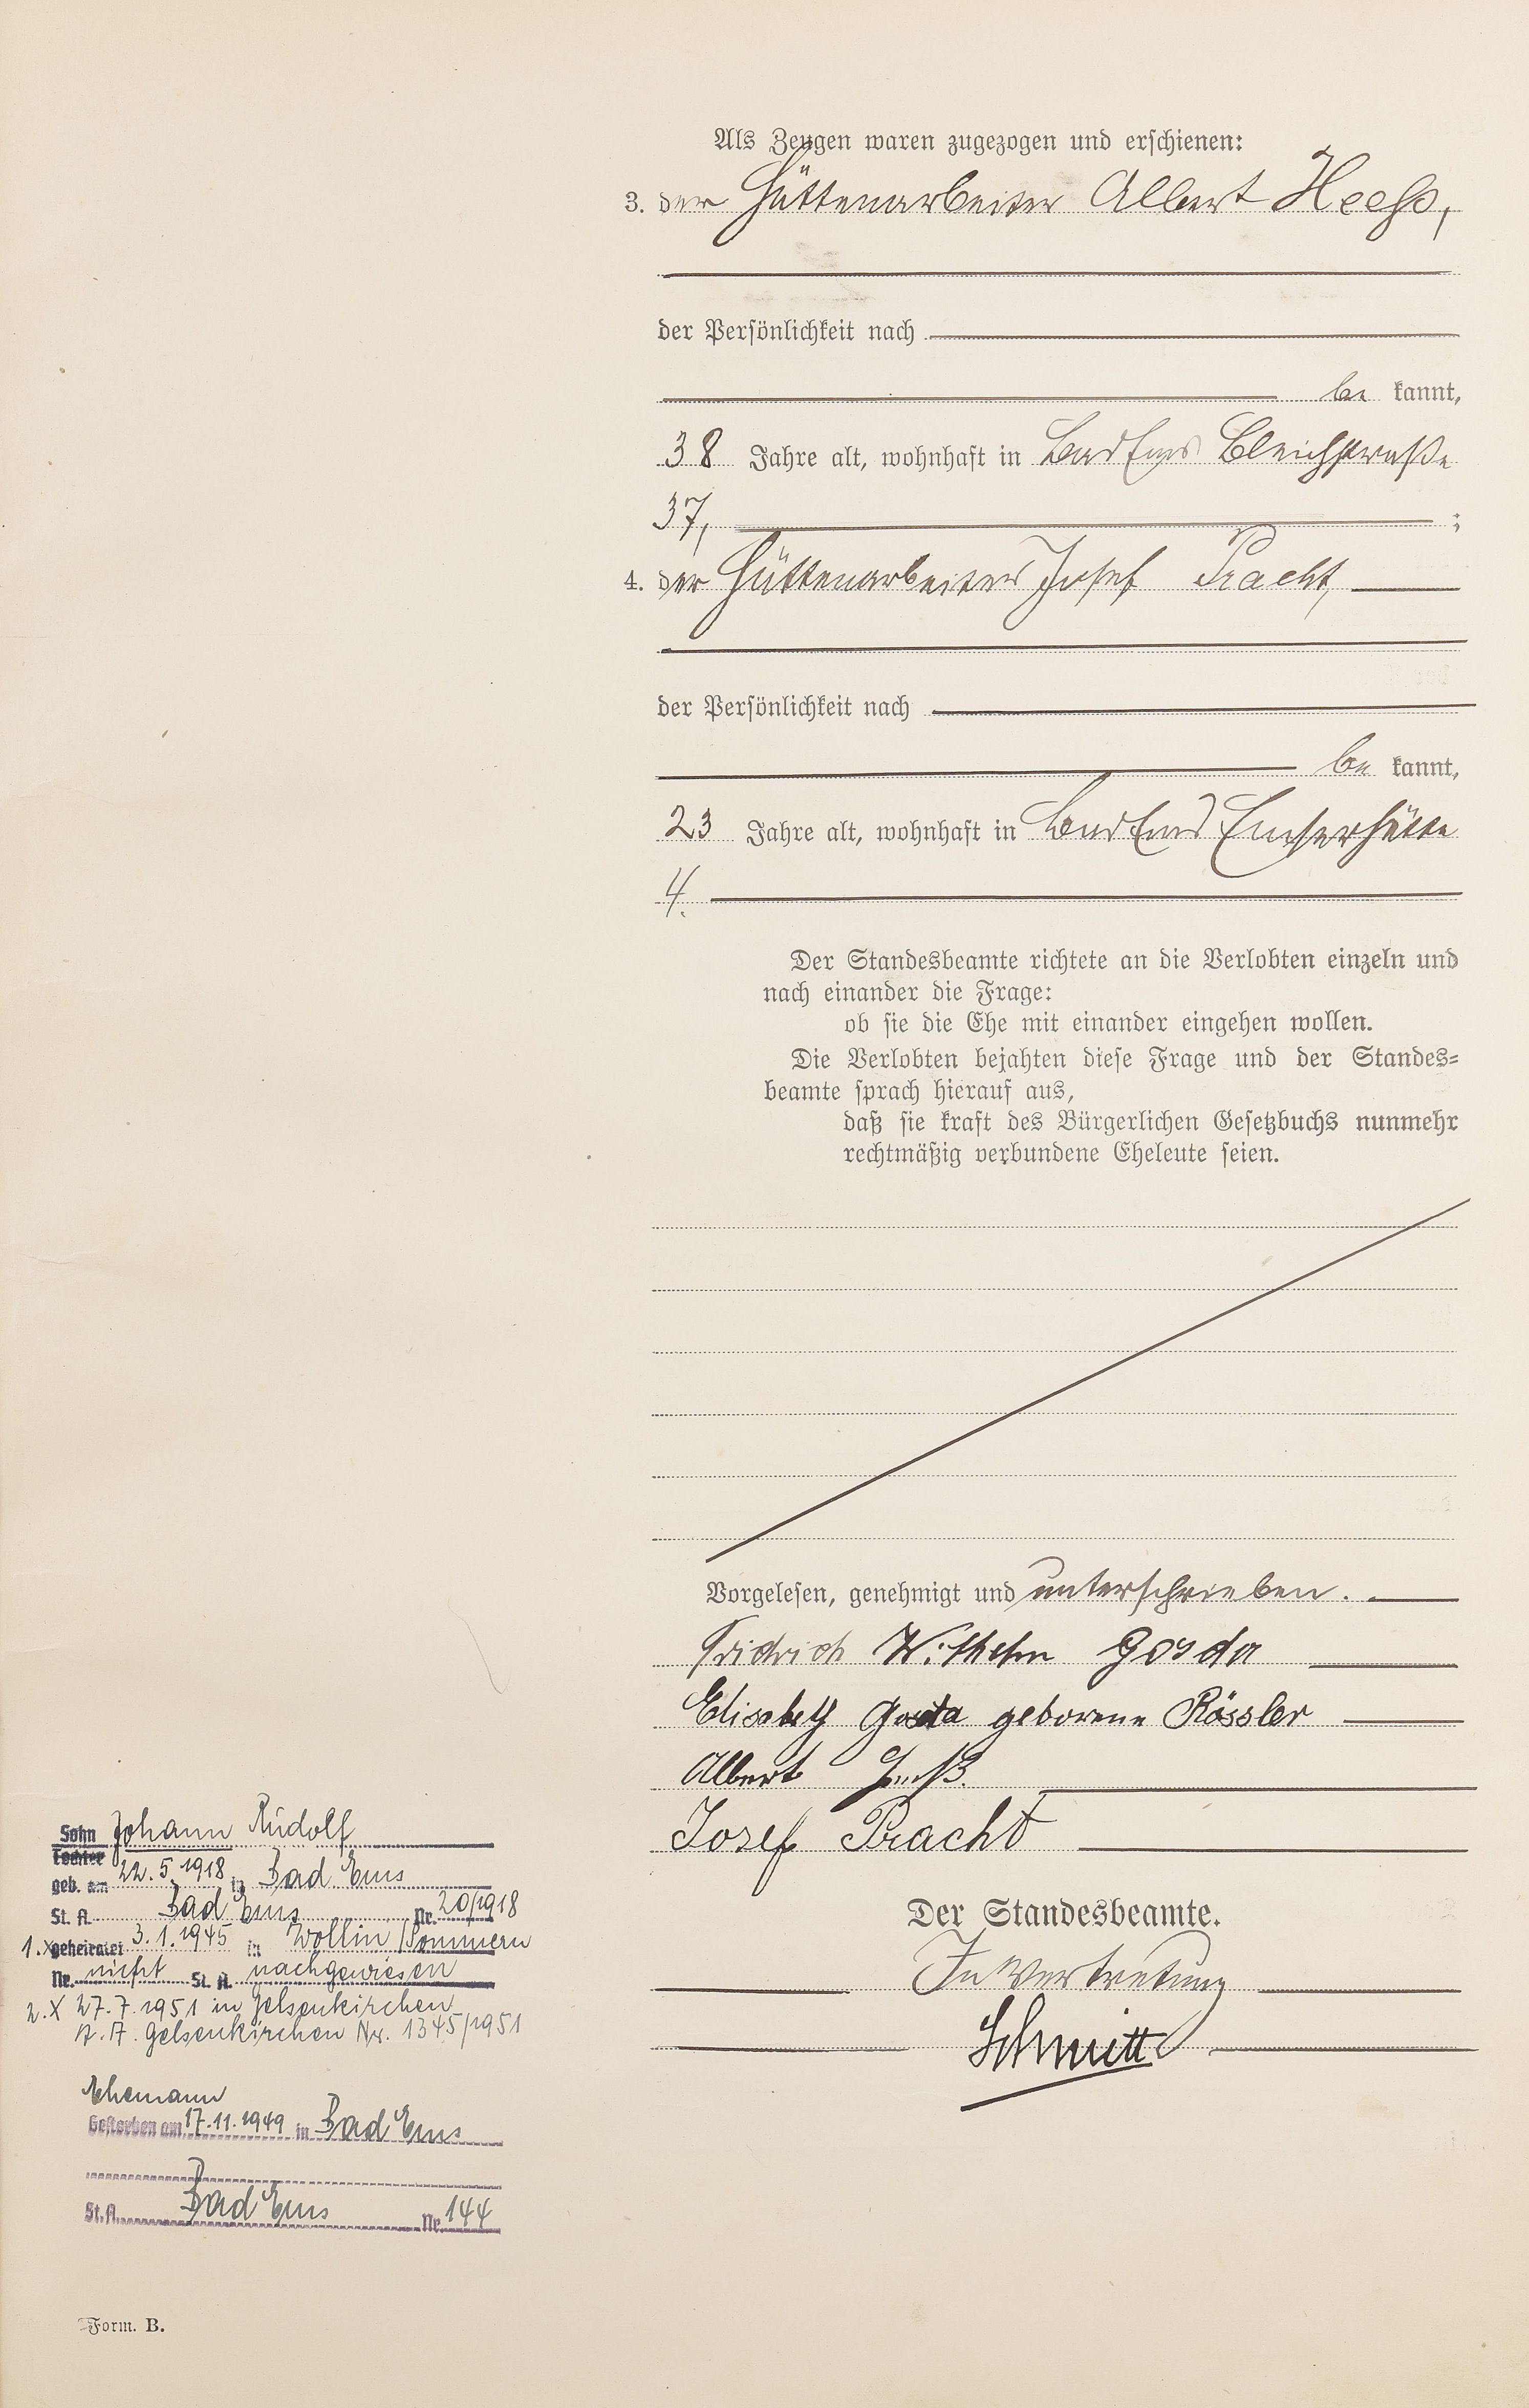 Als Zeugen waren zugezogen und erschienen:
3. der Hüttenarbeiter Albert Heeß,
der Persönlichkeit nach
be kannt,
38 Jahre alt, wohnhaft in Bad Ems Bleichstraße
37, ;
4. der Hüttenarbeiter Josef Pracht,
der Persönlichkeit nach
be kannt,
23 Jahre alt, wohnhaft in Bad Ems Emserhütte
4.
Der Standesbeamte richtete an die Verlobten einzeln und
nach einander die Frage:
ob sie die Ehe mit einander eingehen wollen.
Die Verlobten bejahten diese Frage und der Standes=
beamte sprach hierauf aus,
daß sie kraft des Bürgerlichen Gesetzbuchs nunmehr
rechtmäßig verbundene Eheleute seien.
Vorgelesen, genehmigt und unterschrieben.
Fridrich Wilhelm Gosda
Elisabeth Gosda geborene Rössler
Albert Heeß.
Josef Pracht
Der Standesbeamte.
In Vertretung
Schmitt
Sohn Johann Rudolf
Tochter
geb. am 22.5.1918 in Bad Ems
St. A. Bad Ems Nr. 20/1918
1.X geheiratet 3.1.1945 in Wollin/Pommern
Nr. nicht St. A. nachgewiesen
2.X 27.7.1951 in Gelsenkirchen
St. A. Gelsenkirchen Nr. 1345/1951
Ehemann
Gestorben am 17.11.1949 in Bad Ems
St. A. Bad Ems Nr. 144
Form. B.